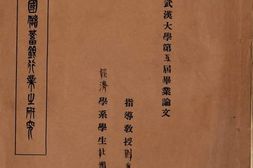 武漢大學第五屆畢業論文
指導教授
經濟學系學生杜
國儲蓄銀行業之研究